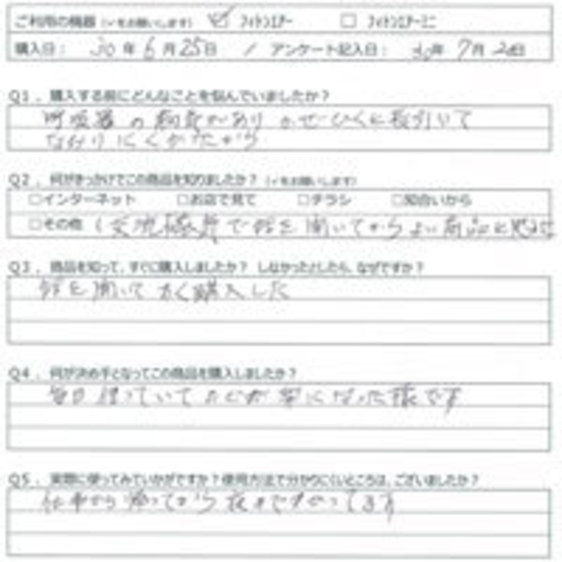 ご利用の機器（✓をお願いします） ☑ フィトンエアー □ フィトンエアーミニ
購入日： 30年 6月 25日 / アンケート記入日： 30年 7月 2日
Q1．購入する前にどんなことを悩んでいましたか？
呼吸器の病気があり かぜ ひくと長引いて
なおりにくかったから
Q2．何がきっかけでこの商品を知りましたか？（✓をお願いします）
□インターネット □お店で見て □チラシ □知合いから
□その他（ で話を聞いてからよい商品だと
Q3．商品を知って、すぐに購入しましたか？ しなかったとしたら、なぜですか？
話を聞いて 購入した
Q4．何が決め手となってこの商品を購入しましたか？
毎日 使っていて のどが 楽になった様です
Q5．実際に使ってみていかがですか？使用方法で分かりにくいところは、ございましたか？
仕事から帰ってから夜 ます